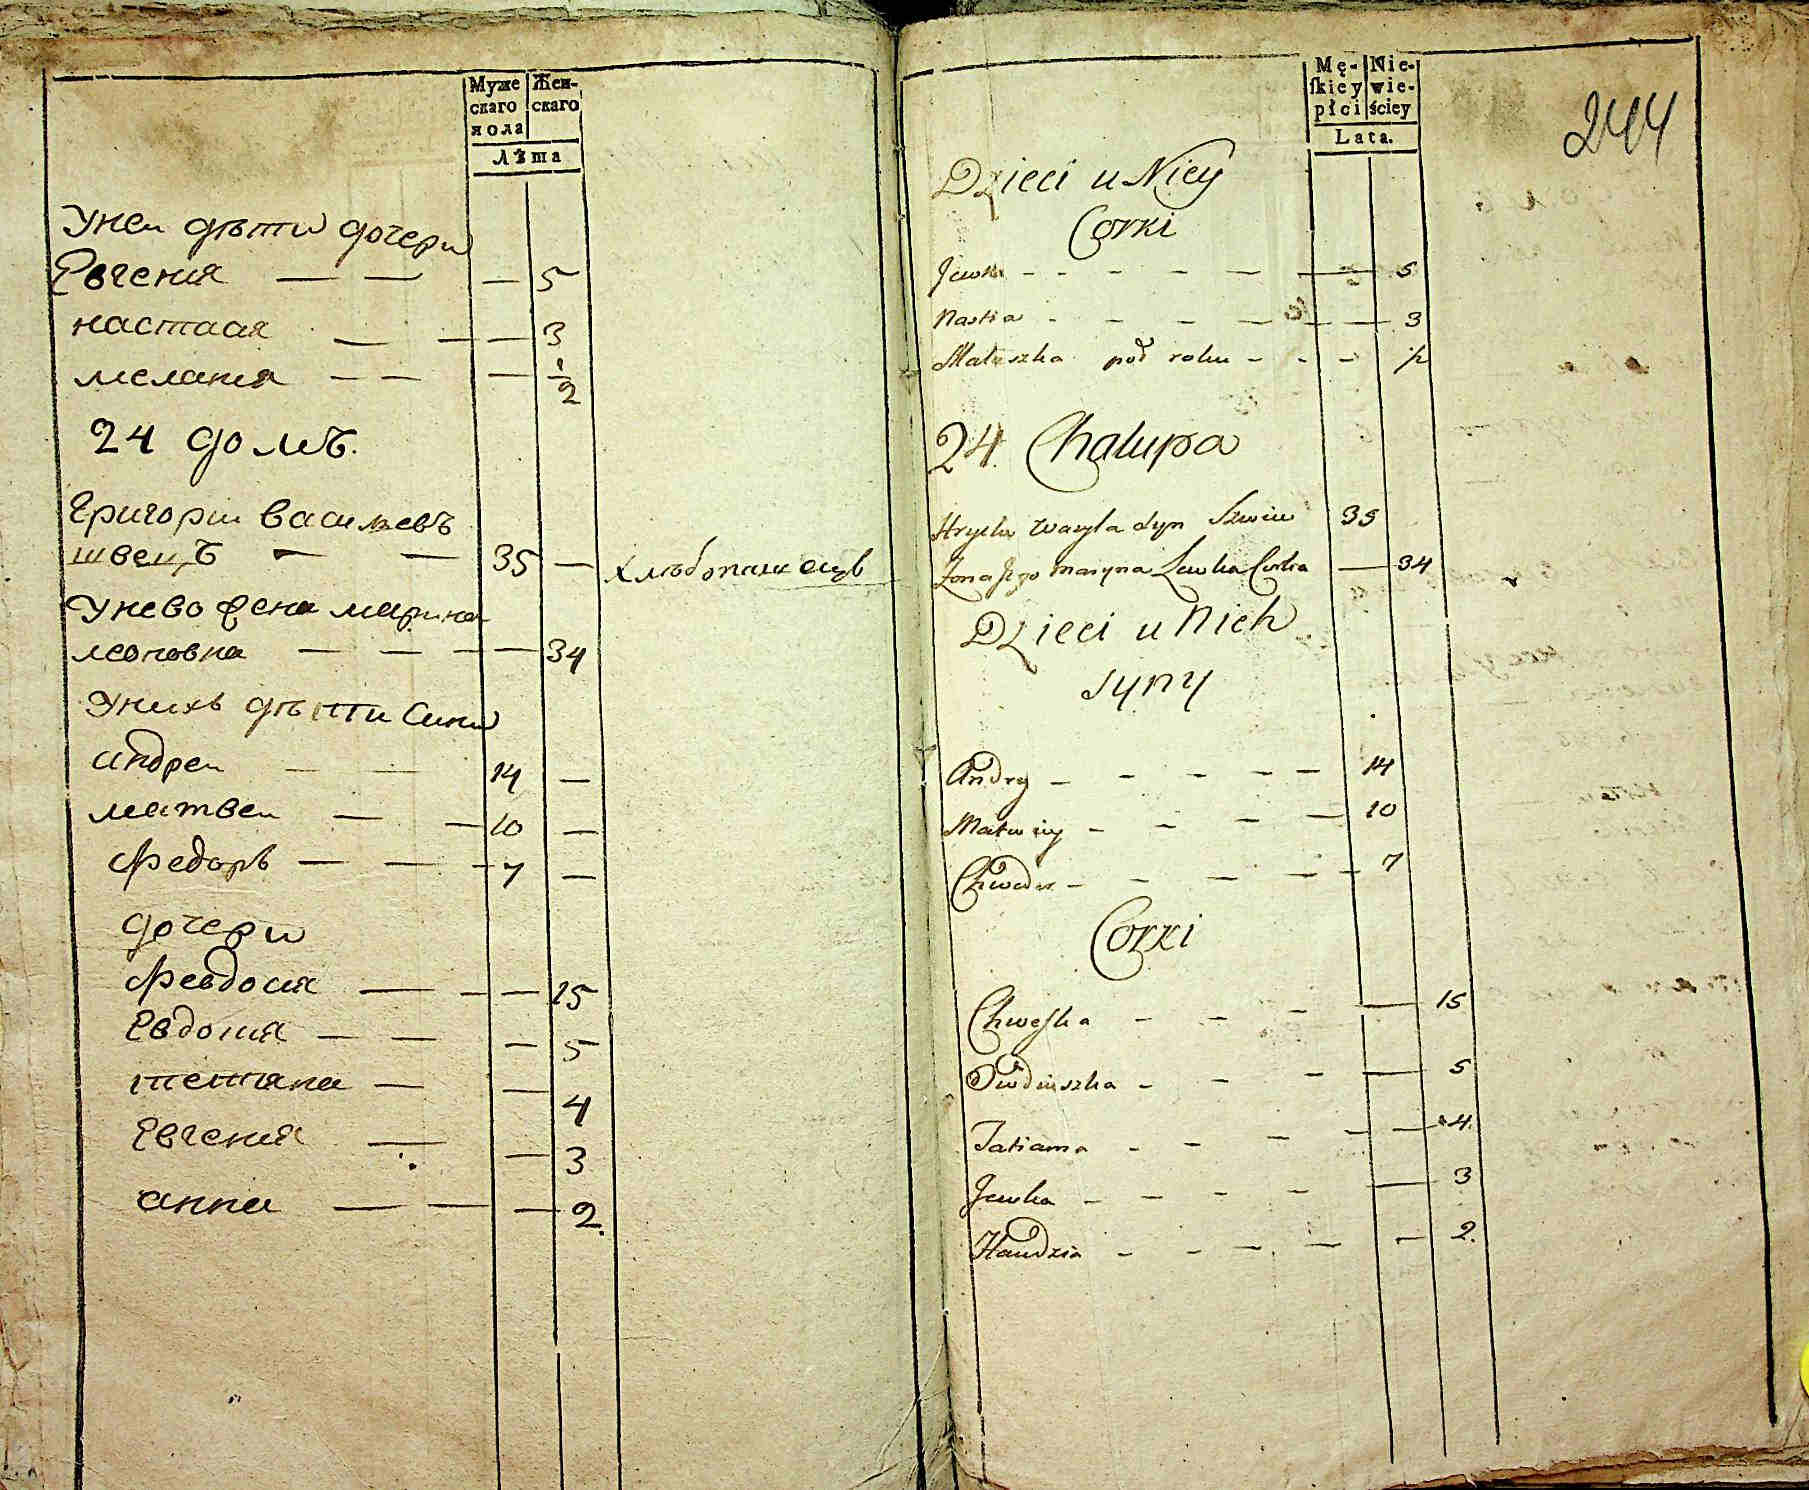 Муже скаго пола
Жен- скаго
Лѣта
Унеи дѣти дочери
Евгения — — — 5
настася — — — 3
мелания — — — 1/2
24 домъ.
Григории васильевъ
швецъ — — 35 — хлѣбопашецъ
Унево жена марина
леоновна — — — — 34
Унихъ дѣти сини
андреи — — 14 —
матвеи — — 10 —
Федоръ — — 7 —
дочери
Февдосия — — — 15
Евдокия — — — 5
тетяна — — 4
Евгения — — 3
анна — — — 2.
244
Mę- ſkiey płci
Nie- wie- ściey
Lata.
Dzieci u Niey
Corki
Jewka - - - - — — 5
Nastia - - - - — — 3
Małaszka pod roku - - - 1/2
24. Chalupa
Hryćko Wasyla Syn Szwiec 35
Żona Jego Maryna Lewka Corka — 34
Dzieci u Nich
Syny
Andry - - - - — 14
Matwiy - - - — 10
Chwedor - - - - - 7
Corki
Chweśka - - - — 15
Owdiuszka - - - — 5
Tatianna - - - - — 4.
Jewka - - - - — 3
Handzia - - - - - 2.